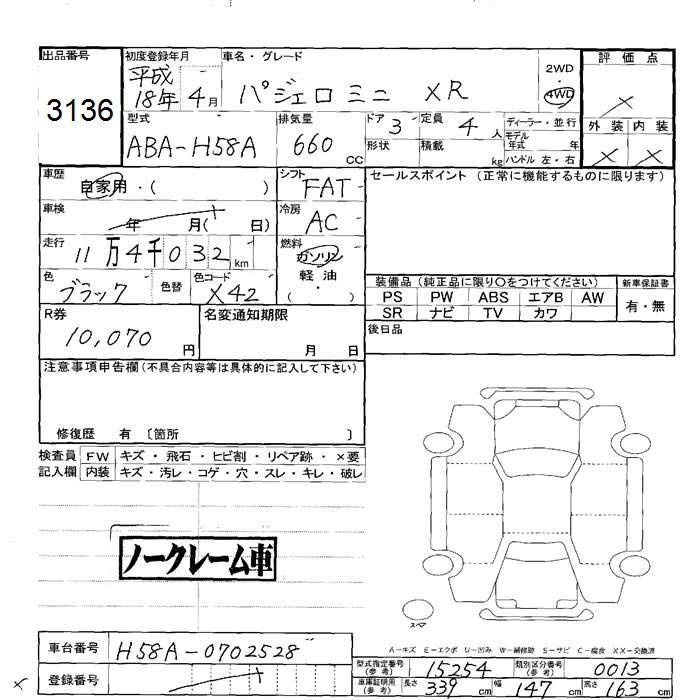 出品番号
3136
初度登録年月
平成
18年 4月
車名・グレード
パジェロ ミニ XR
2WD
・
4WD
評価点
×
型式
ABA-H58A
排気量
660 CC
ドア 3
形状
定員 4 人
積載 kg
ディーラー・並行
モデル
年式 年
ハンドル 左・右
外装 内装
× ×
車歴
自家用・( )
シフト
FAT
セールスポイント (正常に機能するものに限ります)
車検
年 月( 日)
冷房
AC
走行
11万4千032 km
燃料
ガソリン
軽油
・
( )
色
ブラック
色替
色コード
X42
装備品 (純正品に限り○をつけてください)
PS PW ABS エアB AW
SR ナビ TV カワ
新車保証書
有・無
R券
10,070 円
名変通知期限
月 日
後日品
注意事項申告欄 (不具合内容等は具体的に記入して下さい)
修復歴 有 〔箇所 〕
検査員 FW キズ・飛石・ヒビ割・リペア跡・×要
記入欄 内装 キズ・汚レ・コゲ・穴・スレ・キレ・破レ
ノークレーム車
スペア
A－キズ E－エクボ U－凹み W－補修跡 S－サビ C－腐食 XX－交換済
車台番号 H58A-0702528
登録番号
型式指定番号
(参考)
15254
類別区分番号
(参考)
0013
車庫証明用
(参考)
長さ 339 cm 幅 147 cm 高さ 163 cm
×